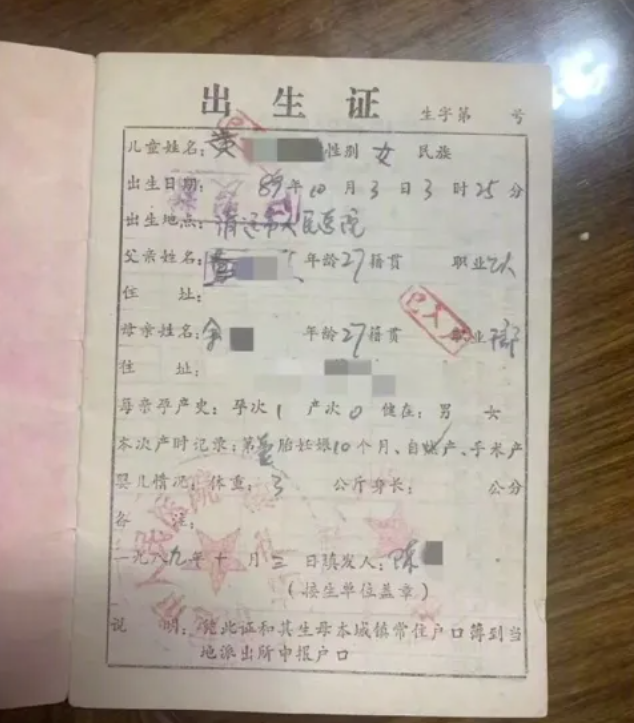 出生证
生字第 号
儿童姓名：黄 性别 女 民族
出生日期： 89年10月3日3时25分
出生地点：清远市人民医院
父亲姓名： 年龄27籍贯 职业
住 址：
已入户
母亲姓名：余 年龄27籍贯 职业
住 址：
母亲孕产史：孕次1 产次0 健在：男 女
本次产时记录：第 胎妊娠10个月、自然产、手术产
婴儿情况：体重：3 公斤身长： 公分
备 注：
一九八九年十月三日填发人：陈
（接生单位盖章）
说 明：凭此证和其生母本城镇常住户口簿到当
地派出所申报户口